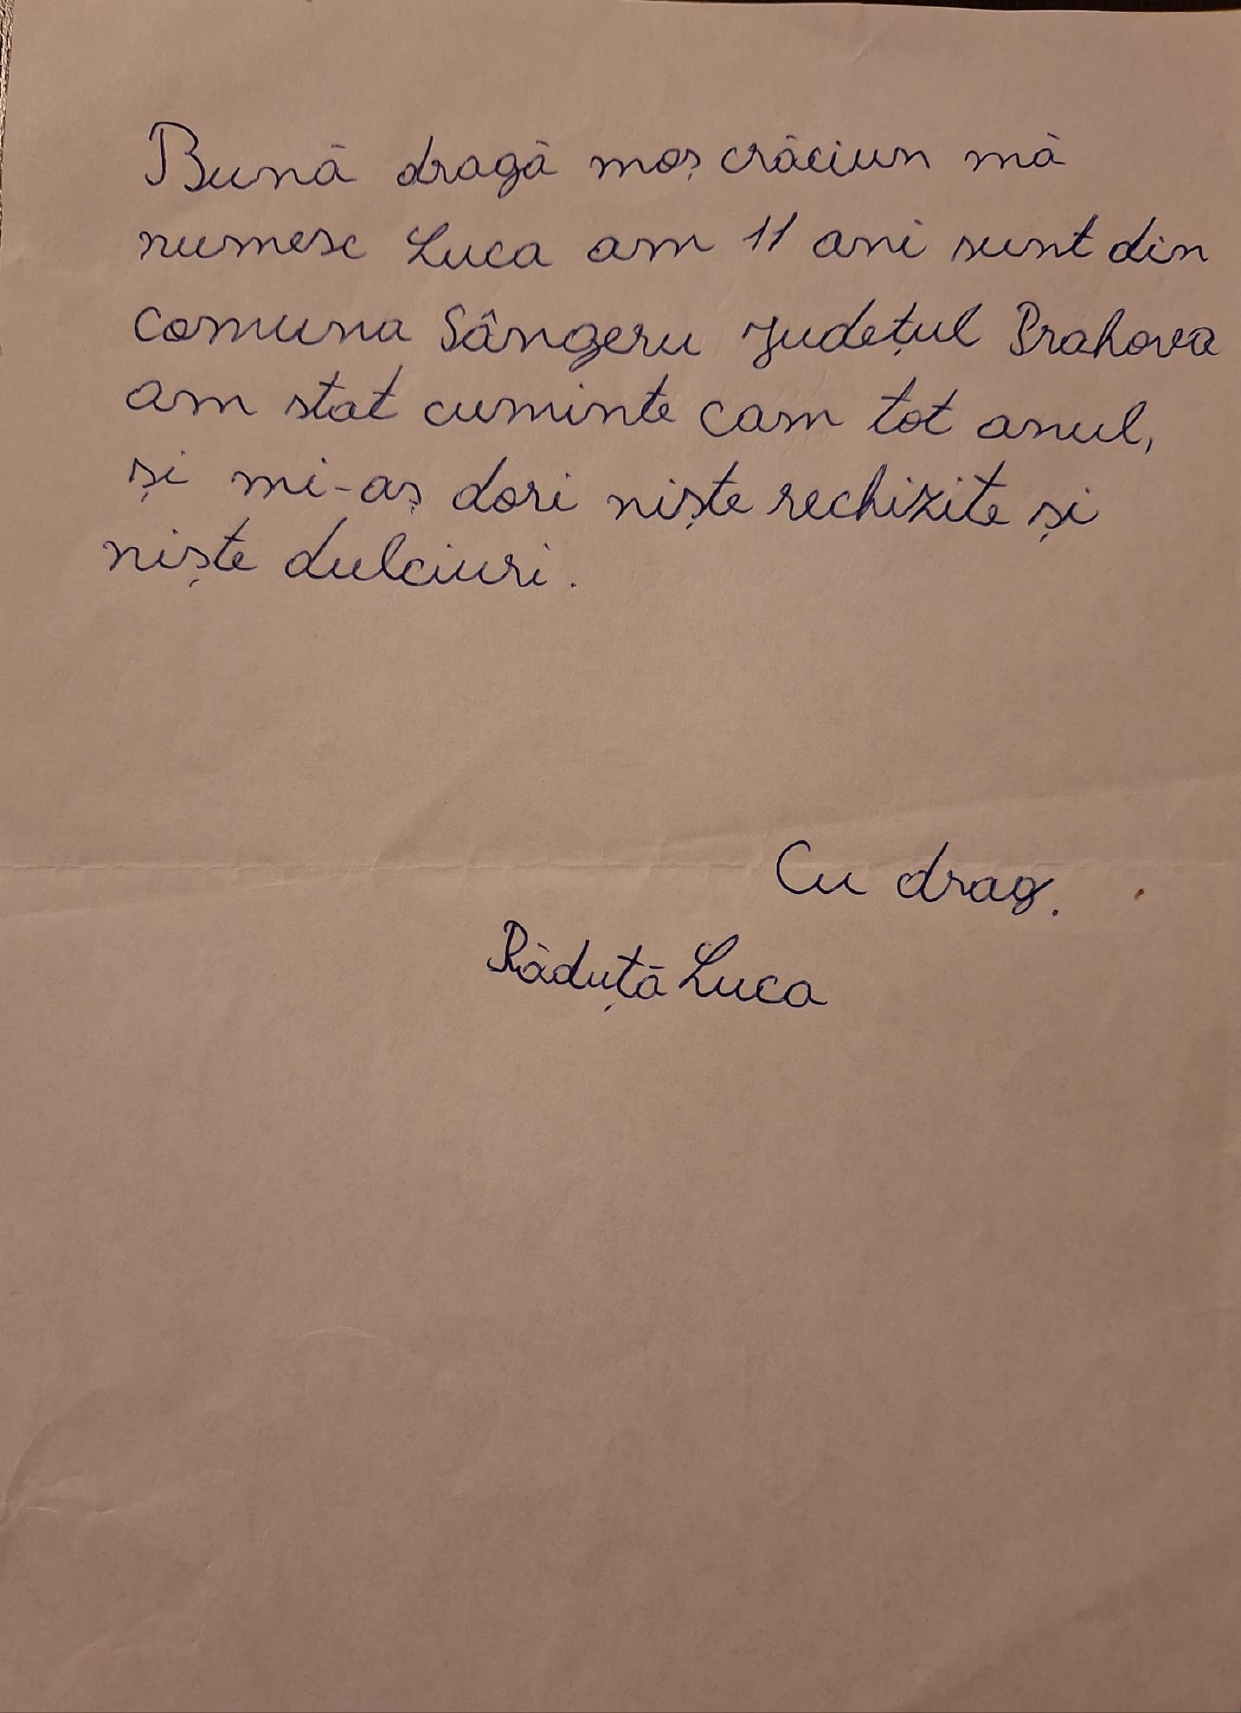 Bună dragă moș crăciun mă
numesc Luca am 11 ani sunt din
comuna Sângeru Județul Prahova
am stat cuminte cam tot anul,
și mi-aș dori niște rechizite și
niște dulciuri.
Cu drag.
Răduță Luca